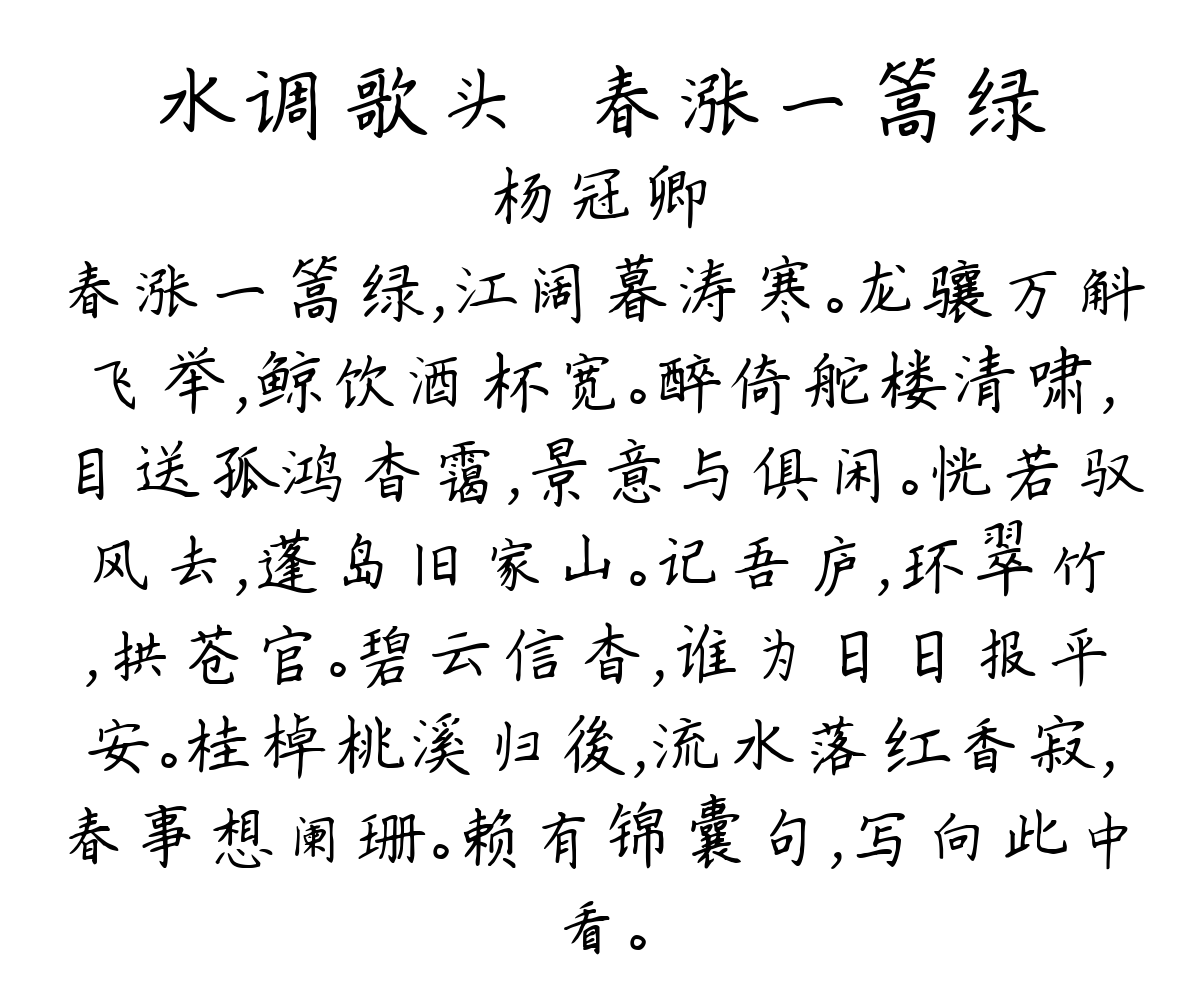 水调歌头 春涨一篙绿
杨冠卿
春涨一篙绿,江阔暮涛寒。龙骧万斛
飞举,鲸饮酒杯宽。醉倚舵楼清啸,
目送孤鸿杳霭,景意与俱闲。恍若驭
风去,蓬岛旧家山。记吾庐,环翠竹
,拱苍官。碧云信杳,谁为日日报平
安。桂棹桃溪归後,流水落红香寂,
春事想阑珊。赖有锦囊句,写向此中
看。